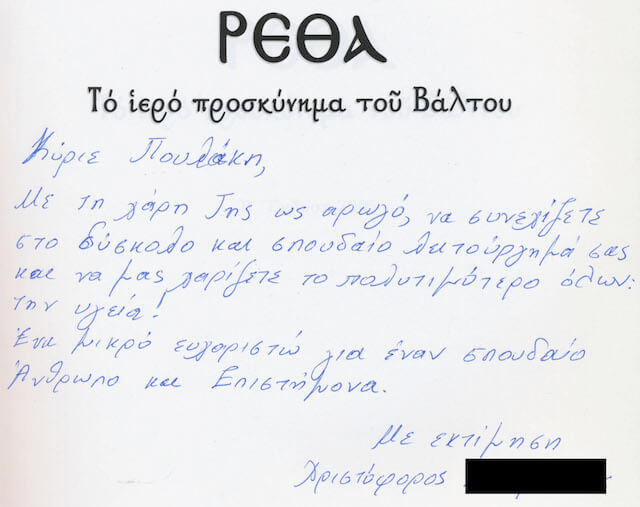 ΡΕΘΑ
Τό ἱερό προσκύνημα τοῦ Βάλτου
Κύριε Πουλάκη,
Με τη χάρη Της ως αρωγό, να συνεχίζετε
στο δύσκολο και σπουδαίο λειτούργημά σας
και να μας χαρίζετε το πολυτιμότερο όλων:
την υγεία!
Ένα μικρό ευχαριστώ για έναν σπουδαίο
Άνθρωπο και Επιστήμονα.
Με εκτίμηση
Χριστόφορος